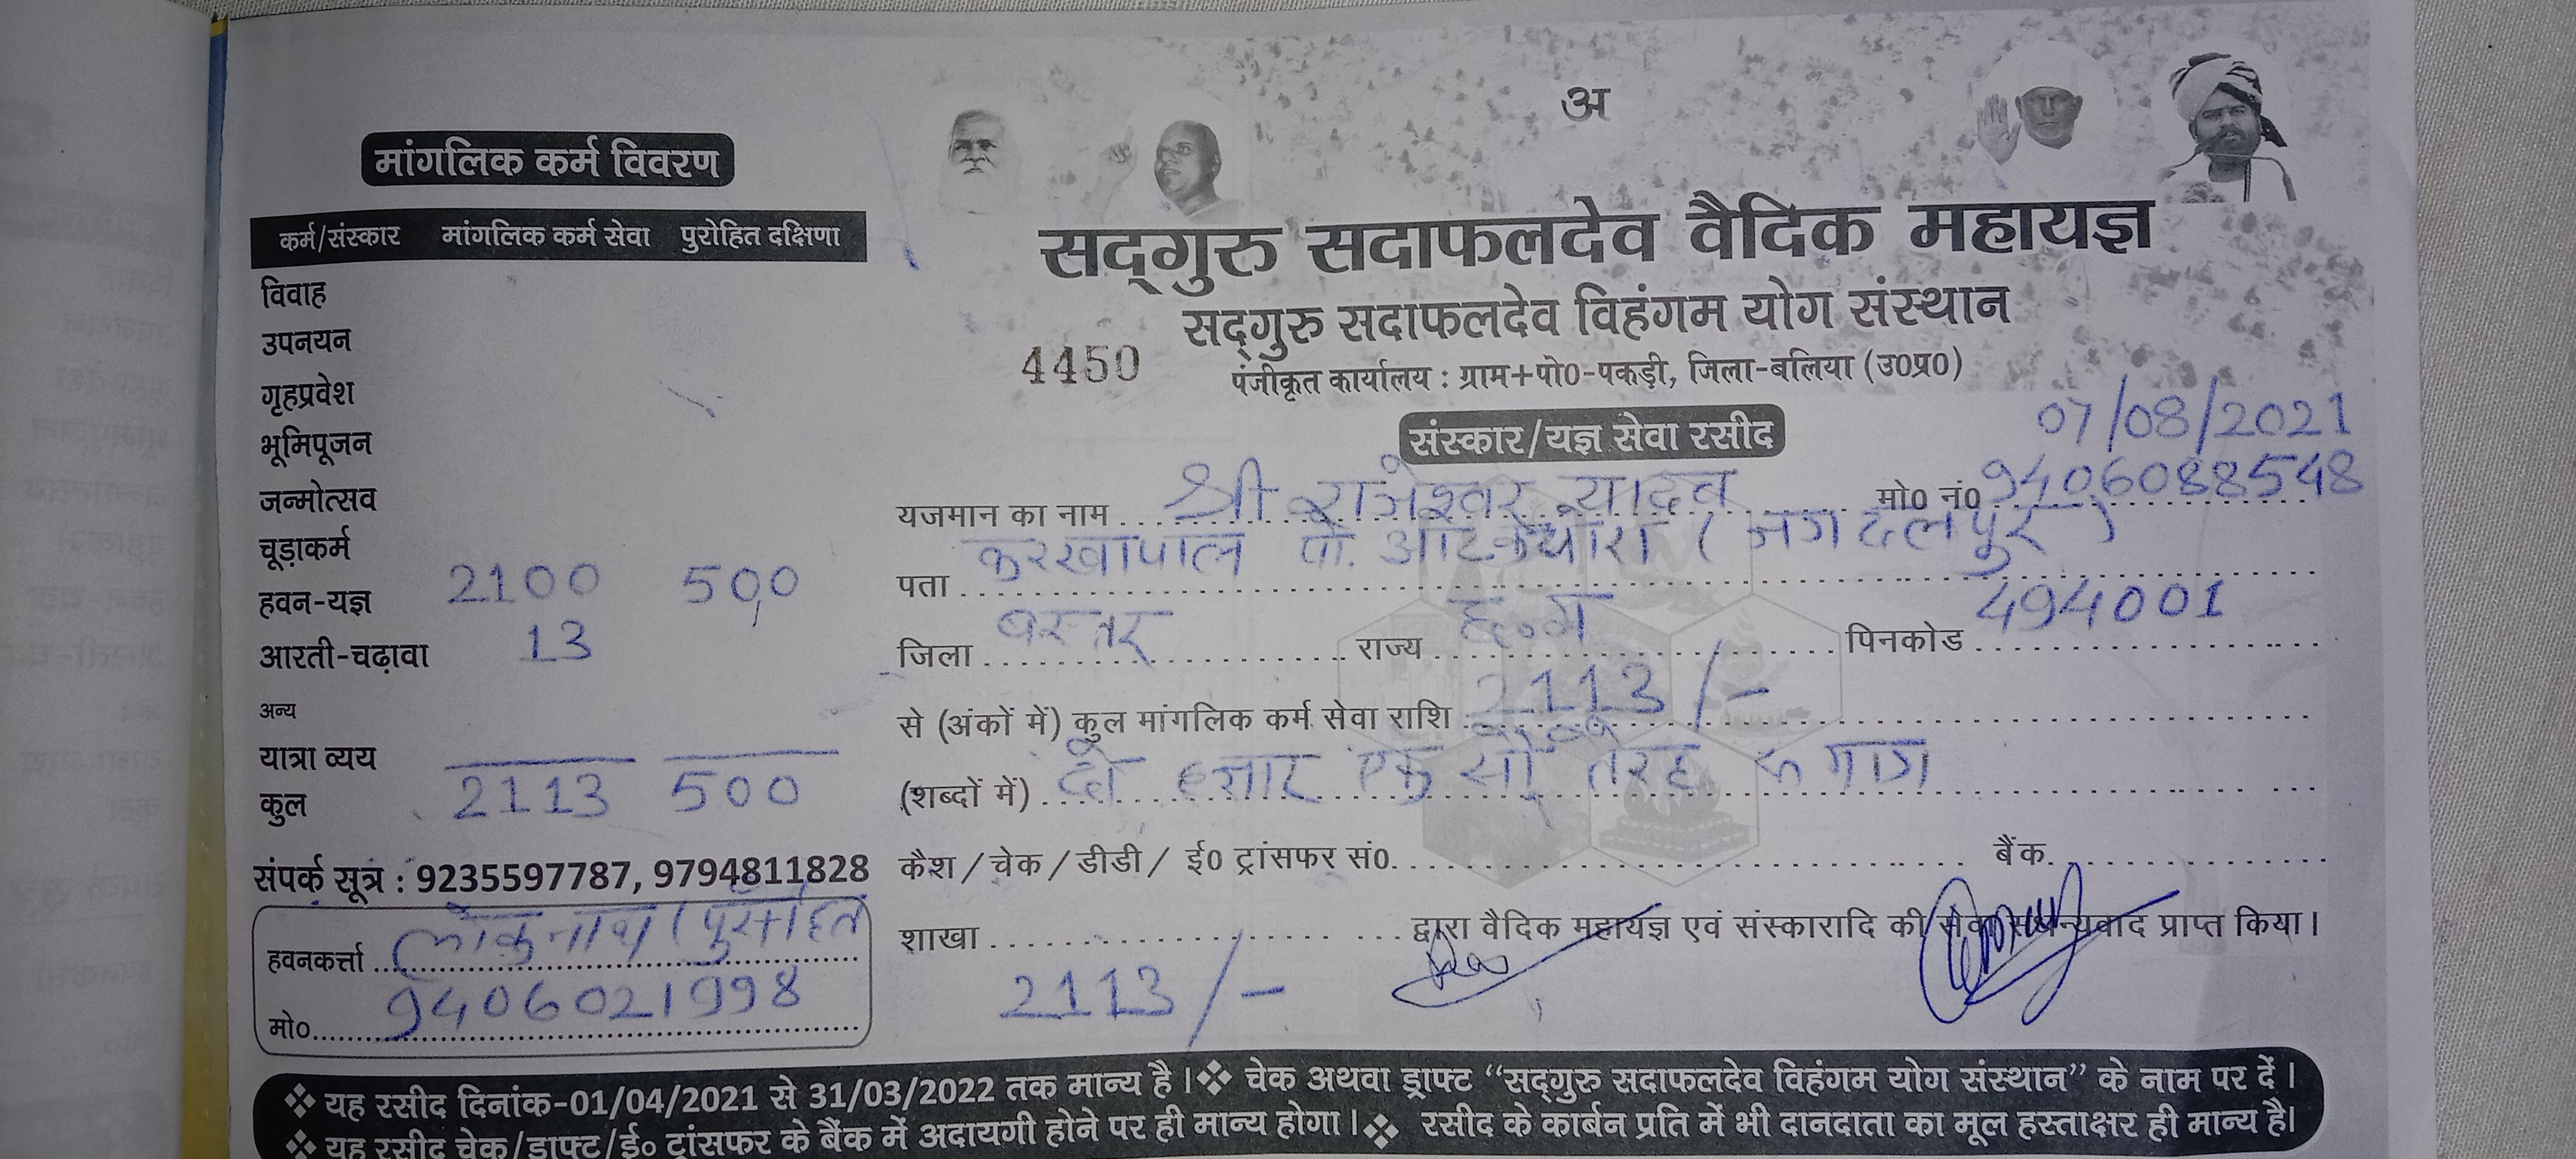 अ
मांगलिक कर्म विवरण
कर्म/संस्कार मांगलिक कर्म सेवा पुरोहित दक्षिणा
विवाह
उपनयन
गृहप्रवेश
भूमिपूजन
जन्मोत्सव
चूड़ाकर्म
हवन-यज्ञ 2100 500
आरती-चढ़ावा 13
अन्य
यात्रा व्यय
कुल 2113 500
संपर्क सूत्र : 9235597787, 9794811828
हवनकर्त्ता लोकनाथ (पुरोहित
मो० 9406021998
सद्गुरु सदाफलदेव वैदिक महायज्ञ
सद्गुरु सदाफलदेव विहंगम योग संस्थान
4450
पंजीकृत कार्यालय : ग्राम+पो0-पकड़ी, जिला-बलिया (उ0प्र0)
संस्कार/यज्ञ सेवा रसीद
07/08/2021
यजमान का नाम श्री राजेश्वर यादव मो0 नं0 9406088548
पता करखापाल पो. (जगदलपुर)
जिला बस्तर राज्य छ.ग पिनकोड 494001
से (अंकों में) कुल मांगलिक कर्म सेवा राशि 2113/-
(शब्दों में) दो हजार एक सौ तेरह
कैश / चेक / डीडी / ई0 ट्रांसफर सं0. बैंक.
शाखा द्वारा वैदिक महायज्ञ एवं संस्कारादि की सेवा सधन्यवाद प्राप्त किया।
2113/-
❖ यह रसीद दिनांक-01/04/2021 से 31/03/2022 तक मान्य है। ❖ चेक अथवा ड्राफ्ट “सद्गुरु सदाफलदेव विहंगम योग संस्थान” के नाम पर दें।
❖ यह रसीद चेक/ड्राफ्ट/ई० ट्रांसफर के बैंक में अदायगी होने पर ही मान्य होगा। ❖ रसीद के कार्बन प्रति में भी दानदाता का मूल हस्ताक्षर ही मान्य है।